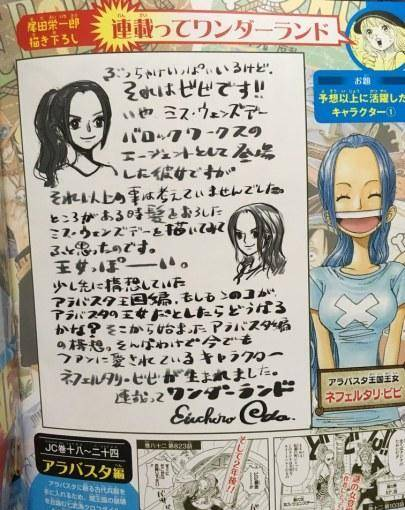 尾田栄一郎
描き下ろし
連載ってワンダーランド
お題
予想以上に活躍した
キャラクター①
ぶっちゃけいっぱいいるけど、
それはビビです!!
いや ミス・ウェンズデー
バロックワークスの
エージェントとして登場
した彼女ですが
それ以上の事は考えていませんでした。
ところがある時髪をおろした
ミス・ウェンズデーを描いてみて
ふと思ったのです。
王女っぽーーい。
少し先に構想していた
アラバスタ王国編、もしもこのコが
アラバスタの王女だとしたらどうなる
かな？そこから始まったアラバスタ編
の構想。そんなわけで今でも
ファンに愛されているキャラクター
ネフェルタリ・ビビが生まれました。
連載って ワンダーランド
Eiichiro Oda.
アラバスタ王国王女
ネフェルタリ・ビビ
JC巻十八〜二十四
アラバスタ編
アラバスタに眠る古代兵器を
手に入れるため、国王国の崩壊
巻八十二 第823話
そして2年後!!